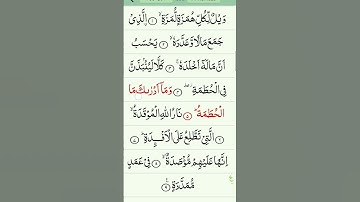 وَيْلٌ لِّكُلِّ هُمَزَةٍ لُّمَزَةٍ ۙ ﴿۱﴾ اۨلَّذِىْ
جَمَعَ مَالًا وَّعَدَّدَهٗ ۙ ﴿۲﴾ يَحْسَبُ
اَنَّ مَالَهٗۤ اَخْلَدَهٗ ۚ ﴿۳﴾ كَلَّا لَيُنْۢبَذَنَّ
فِى الْحُطَمَةِ ۖ ﴿۴﴾ وَمَاۤ اَدْرٰٮكَ مَا
الْحُطَمَةُ ؕ ﴿۵﴾ نَارُ اللّٰهِ الْمُوْقَدَةُ ۙ
﴿۶﴾ الَّتِىْ تَطَّلِعُ عَلَى الْاَفْـِٕدَةِ ؕ ﴿۷﴾
اِنَّهَا عَلَيْهِمْ مُّؤْصَدَةٌ ۙ ﴿۸﴾ فِىْ عَمَدٍ
مُّمَدَّدَةٍ ﴿۹﴾